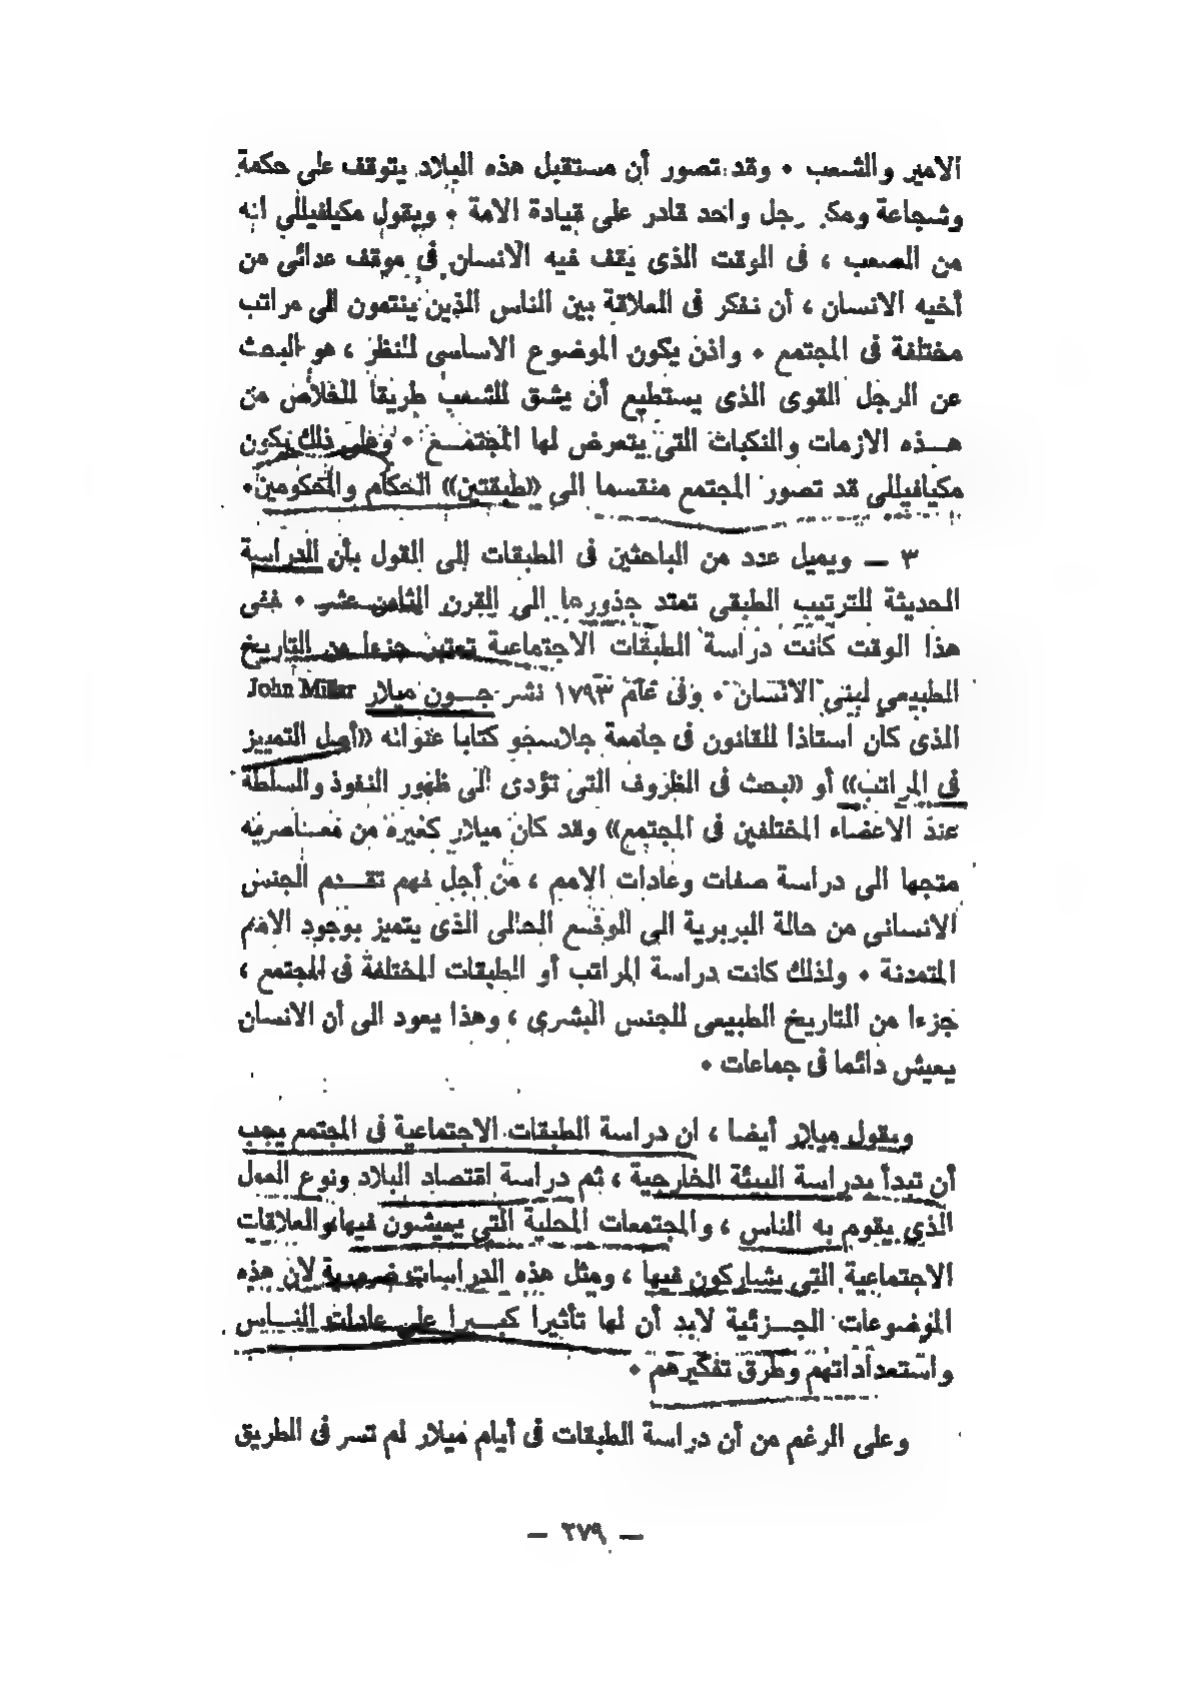 الامير والشعب ٠ وقد تصور أن مستقبل هذه البلاد يتوقف على حكمة
وشجاعة ومكر رجل واحد قادر على قيادة الامة ٠ ويقول مكيافيللى انه
من الصعب ، فى الوقت الذى يقف فيه الانسان فى موقف عدائى من
أخيه الانسان ، أن نفكر فى العلاقة بين الناس الذين ينتمون الى مراتب
مختلفة فى المجتمع ٠ واذن يكون الموضوع الاساسى للنظر ، هو البحث
عن الرجل القوى الذى يستطيع أن يشق للشعب طريقا للخلاص من
هـــذه الازمات والنكبات التى يتعرض لها المجتمـــع ٠ وعلى ذلك يكون
مكيافيللى قد تصور المجتمع منقسما الى «طبقتين» الحكام والمحكومين٠
٣ — ويميل عدد من الباحثين فى الطبقات إلى القول بأن الدراسة
الحديثة للترتيب الطبقى تمتد جذورها الى القرن الثامن عشر ٠ ففى
هذا الوقت كانت دراسة الطبقات الاجتماعية تعتبر جزءا من التاريخ
الطبيعي لبنى الانسان ٠ وفى عام ١٧٩٣ نشر جـــون ميلار John Millar
الذى كان استاذا للقانون فى جامعة جلاسجو كتابا عنوانه «أصل التمييز
فى المراتب» أو «بحث فى الظروف التى تؤدى الى ظهور النفوذ والسلطة
عند الاعضاء المختلفين فى المجتمع» وقد كان ميلار كغيره من معـاصريه
متجها الى دراسة صفات وعادات الامم ، من أجل فهم تقـــدم الجنس
الانسانى من حالة البربرية الى الوضع الحالى الذى يتميز بوجود الامم
المتمدنة ٠ ولذلك كانت دراسة المراتب أو الطبقات المختلفة فى المجتمع ،
جزءا من التاريخ الطبيعى للجنس البشرى ، وهذا يعود الى أن الانسان
يعيش دائما فى جماعات ٠
ويقول ميلار أيضا ، ان دراسة الطبقات الاجتماعية فى المجتمع يجب
أن تبدأ بدراسة البيئة الخارجية ، ثم دراسة اقتصاد البلاد ونوع العمل
الذي يقوم به الناس ، والمجتمعات المحلية التى يعيشون فيها، والعلاقات
الاجتماعية التى يشاركون فيها ، ومثل هذه الدراسات ضرورية لان هذه
الموضوعات الجـــزئية لابد أن لها تأثيرا كبـــيرا على عادات النـــاس
واستعداداتهم وطرق تفكيرهم ٠
وعلى الرغم من أن دراسة الطبقات فى أيام ميلار لم تسر فى الطريق
— ٢٧٩ —